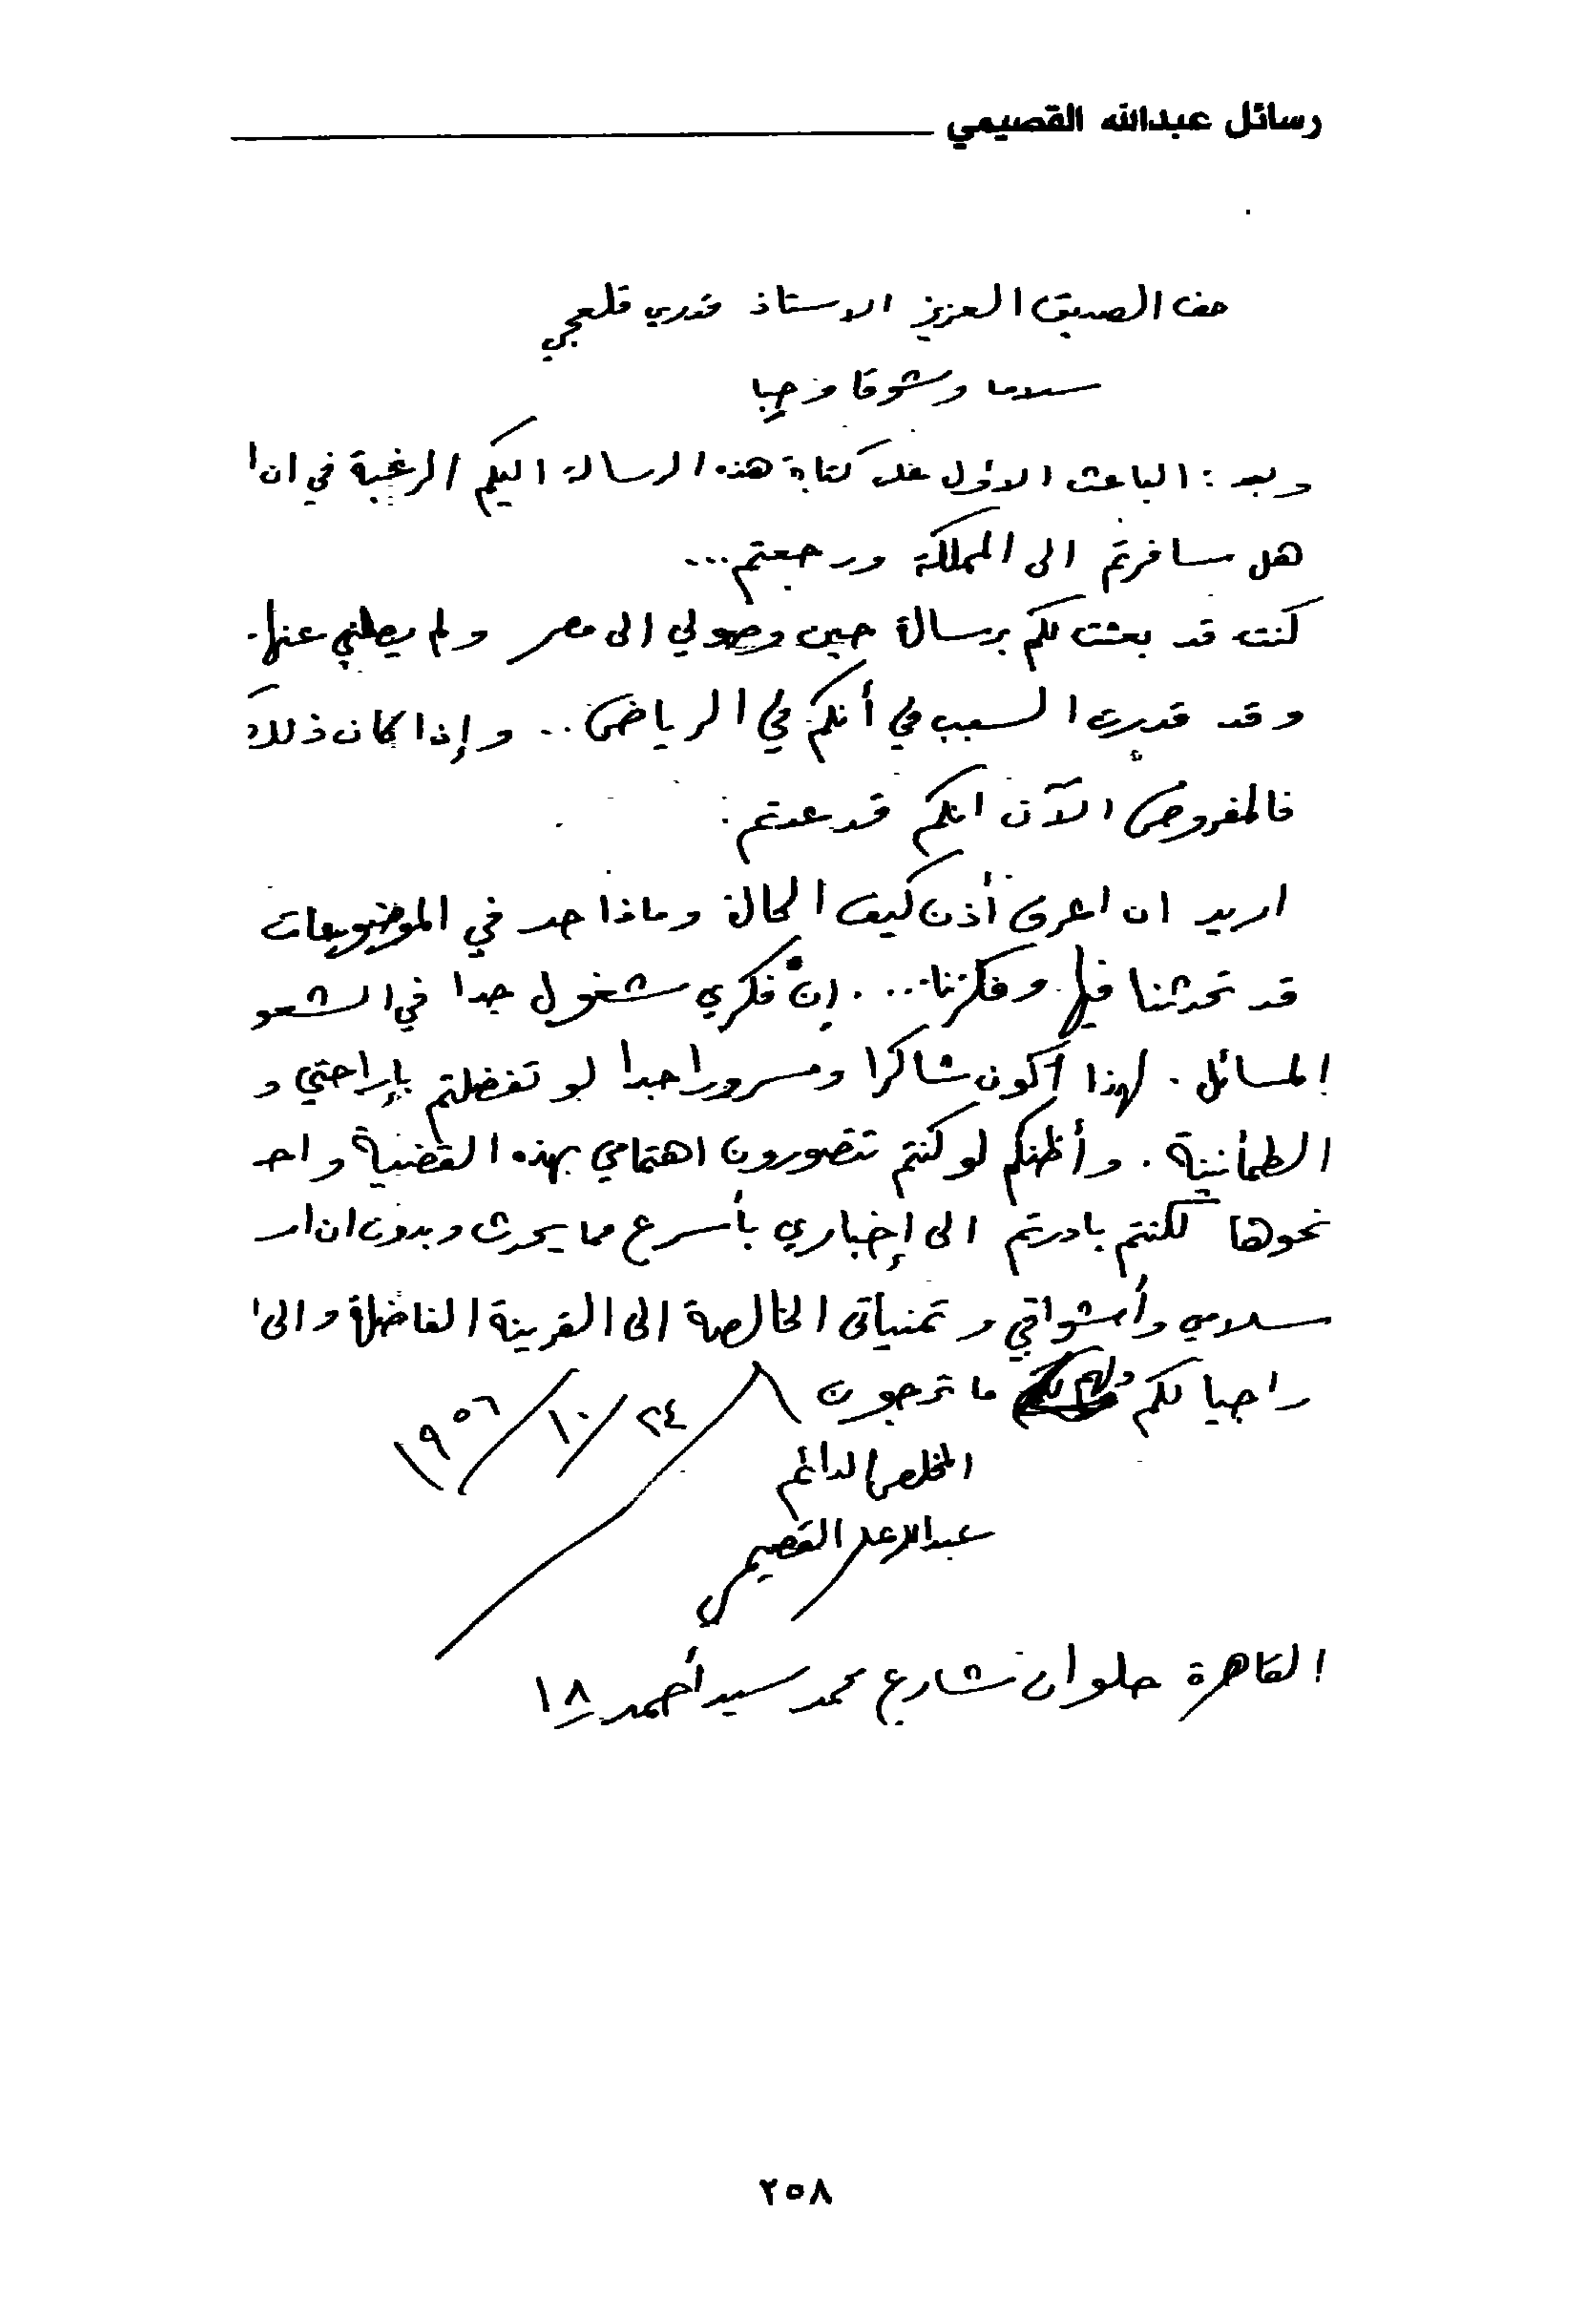 رسائل عبدالله القصيمي
الصديق العزيز الاستاذ قدري قلعجي
سلاما وشوقا وحبا
وبعد : الباعث الاول على كتابة هذه الرسالة اليكم الرغبة في ان ا
هل سافرتم الى المملكة ورجعتم...
كنت قد بعثت لكم برسالة حين وصولي الى مصر ولم يصلني عنها
وقد قدرت السبب في أنكم في الرياض .. وإذا كان ذلك
فالمفروض الآن انكم قد عدتم .
اريد ان اعرف أذن كيف الحالة وماذا جد في الموضوعات
قد تحدثنا فيها وفكرنا... إن فكري مشغول جدا في الشعو
المسائل . لهذا أكون شاكرا ومسرورا جدا لو تفضلتم بإراحتي و
الطمأنينة . وأظنكم لو كنتم تتصورون اهتمامي بهذه القضية واحـ
نحوها لكنتم بادرتم الى إخباري بأسرع مما يحدث وبدون ان ار
سلامي وأشواقي وتمنياتي الخالصة الى القرينة الفاضلة والى ا
راجيا لكم ولهم ما ترجون
٢٤/١٠/١٩٥٦
المخلص الدائم
عبدالله علي القصيمي
القاهرة حلوان شارع محمد سيد أحمد ١٨
٢٥٨